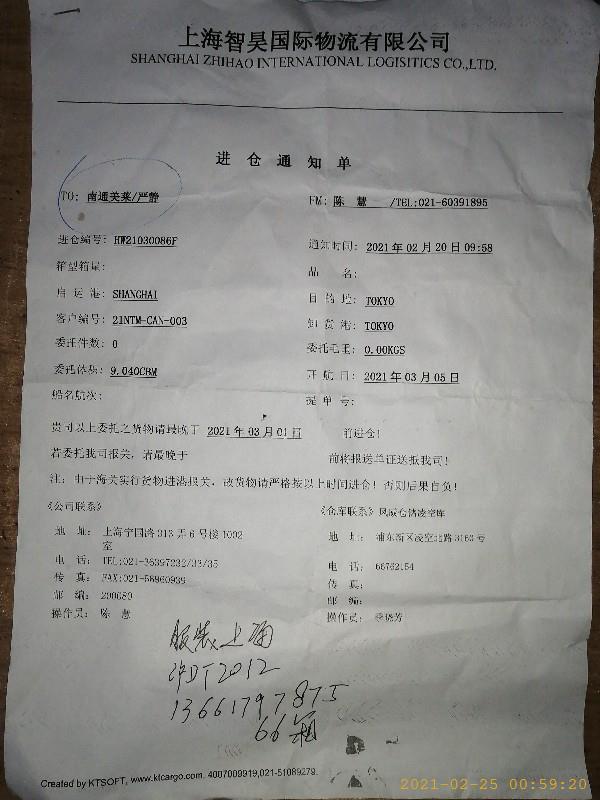 上海智昊国际物流有限公司
SHANGHAI ZHIHAO INTERNATIONAL LOGISITICS CO.,LTD.
进仓通知单
TO: 南通美莱/严静 FM: 陈 慧 /TEL:021-60391895
进仓编号: HW21030086F 通知时间: 2021年02月20日09:58
箱型箱量: 品 名:
启运港: SHANGHAI 目的地: TOKYO
客户编号: 21NTM-CAN-003 卸货港: TOKYO
委托件数: 0 委托毛重: 0.00KGS
委托体积: 9.040CBM 开航日: 2021年03月05日
船名航次: 提单号:
贵司以上委托之货物请最晚于 2021年03月01日 前进仓!
若委托我司报关, 请最晚于 前将报送单证送抵我司!
注: 由于海关实行货物进港报关, 故货物请严格按以上时间进仓! 否则后果自负!
《公司联系》 《仓库联系》
地 址: 上海宁国路313弄6号楼1002室 地 址: 浦东新区凌空北路3163号
电 话: TEL:021-35397232/33/35 电 话: 66762154
传 真: FAX:021-58960939 传 真:
邮 编: 200080 邮 编:
操作员: 陈 慧 操作员:
服装上海
沪DT2012
13661797875
66箱
Created by KTSOFT, www.ktcargo.com. 4007009919,021-51089279.
2021-02-25 00:59:20